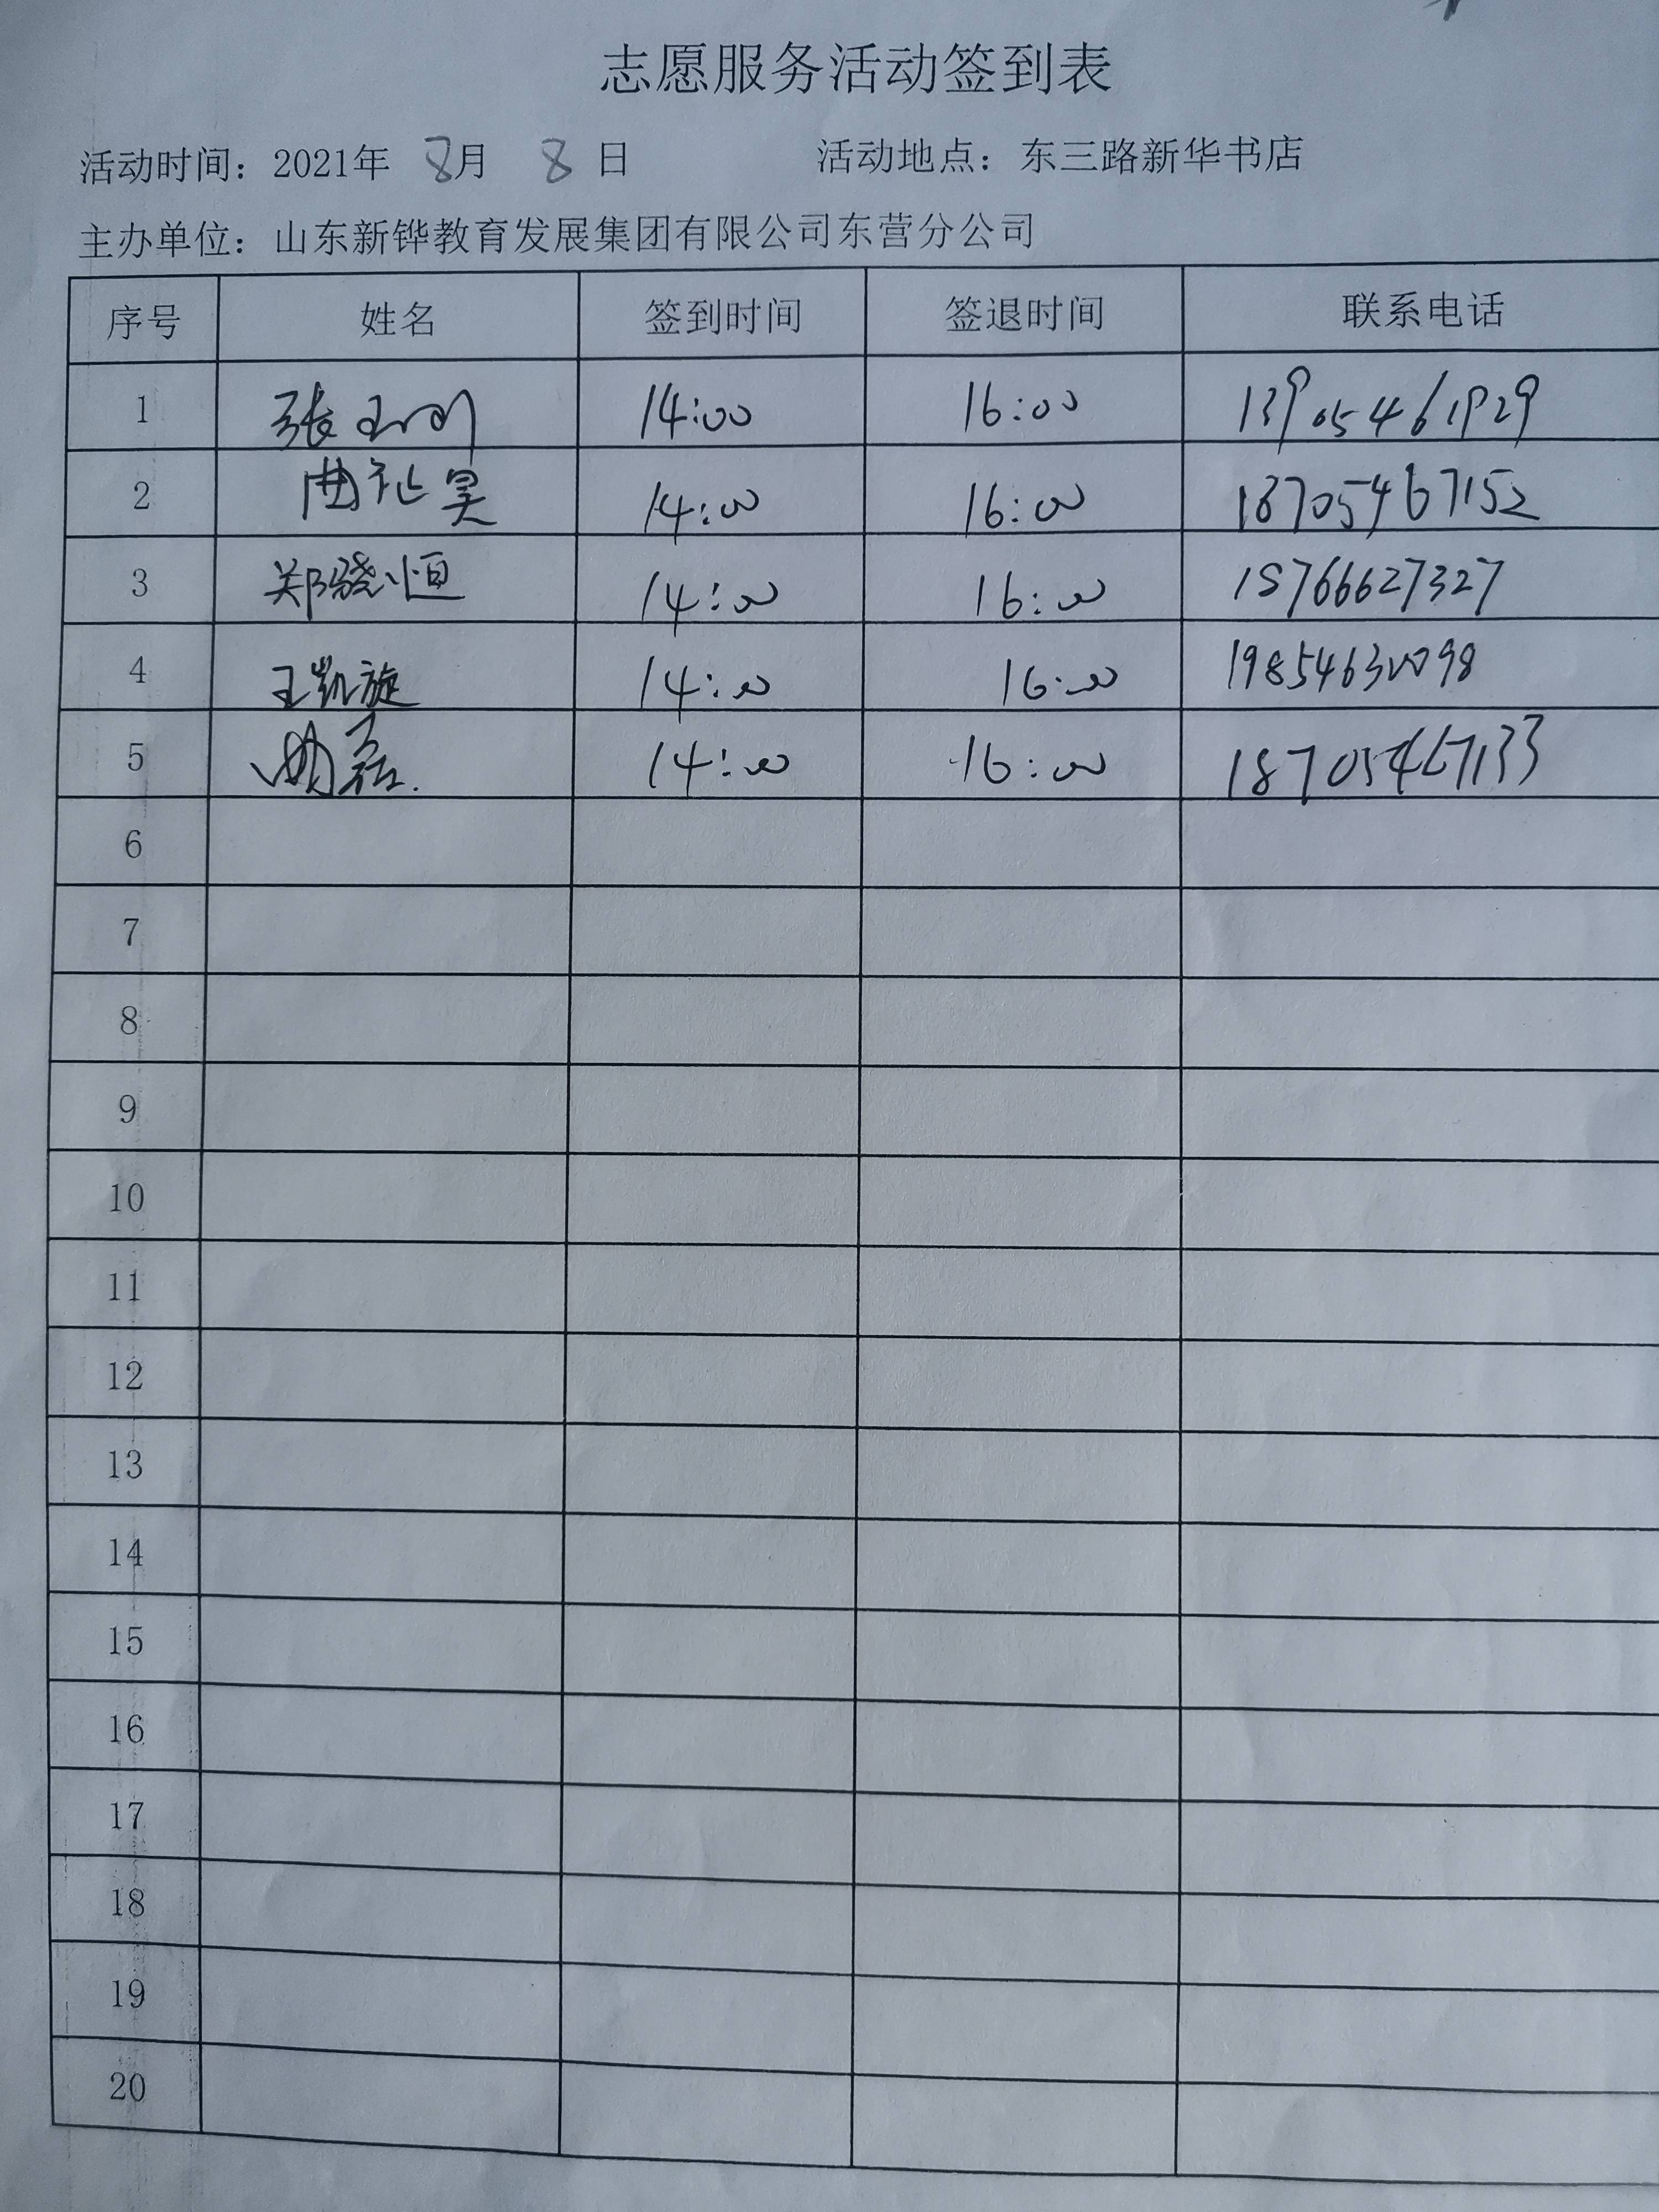 志愿服务活动签到表
活动时间：2021年 8月 8 日 活动地点：东三路新华书店
主办单位：山东新铧教育发展集团有限公司东营分公司
序号 姓名 签到时间 签退时间 联系电话
1 张 14:00 16:00 13905461929
2 曲祉昊 14:00 16:00 18705467152
3 郑骁恒 14:00 16:00 18766627327
4 王凯旋 14:00 16:00 19854630098
5 曲磊 14:00 16:00 18705467133
6
7
8
9
10
11
12
13
14
15
16
17
18
19
20